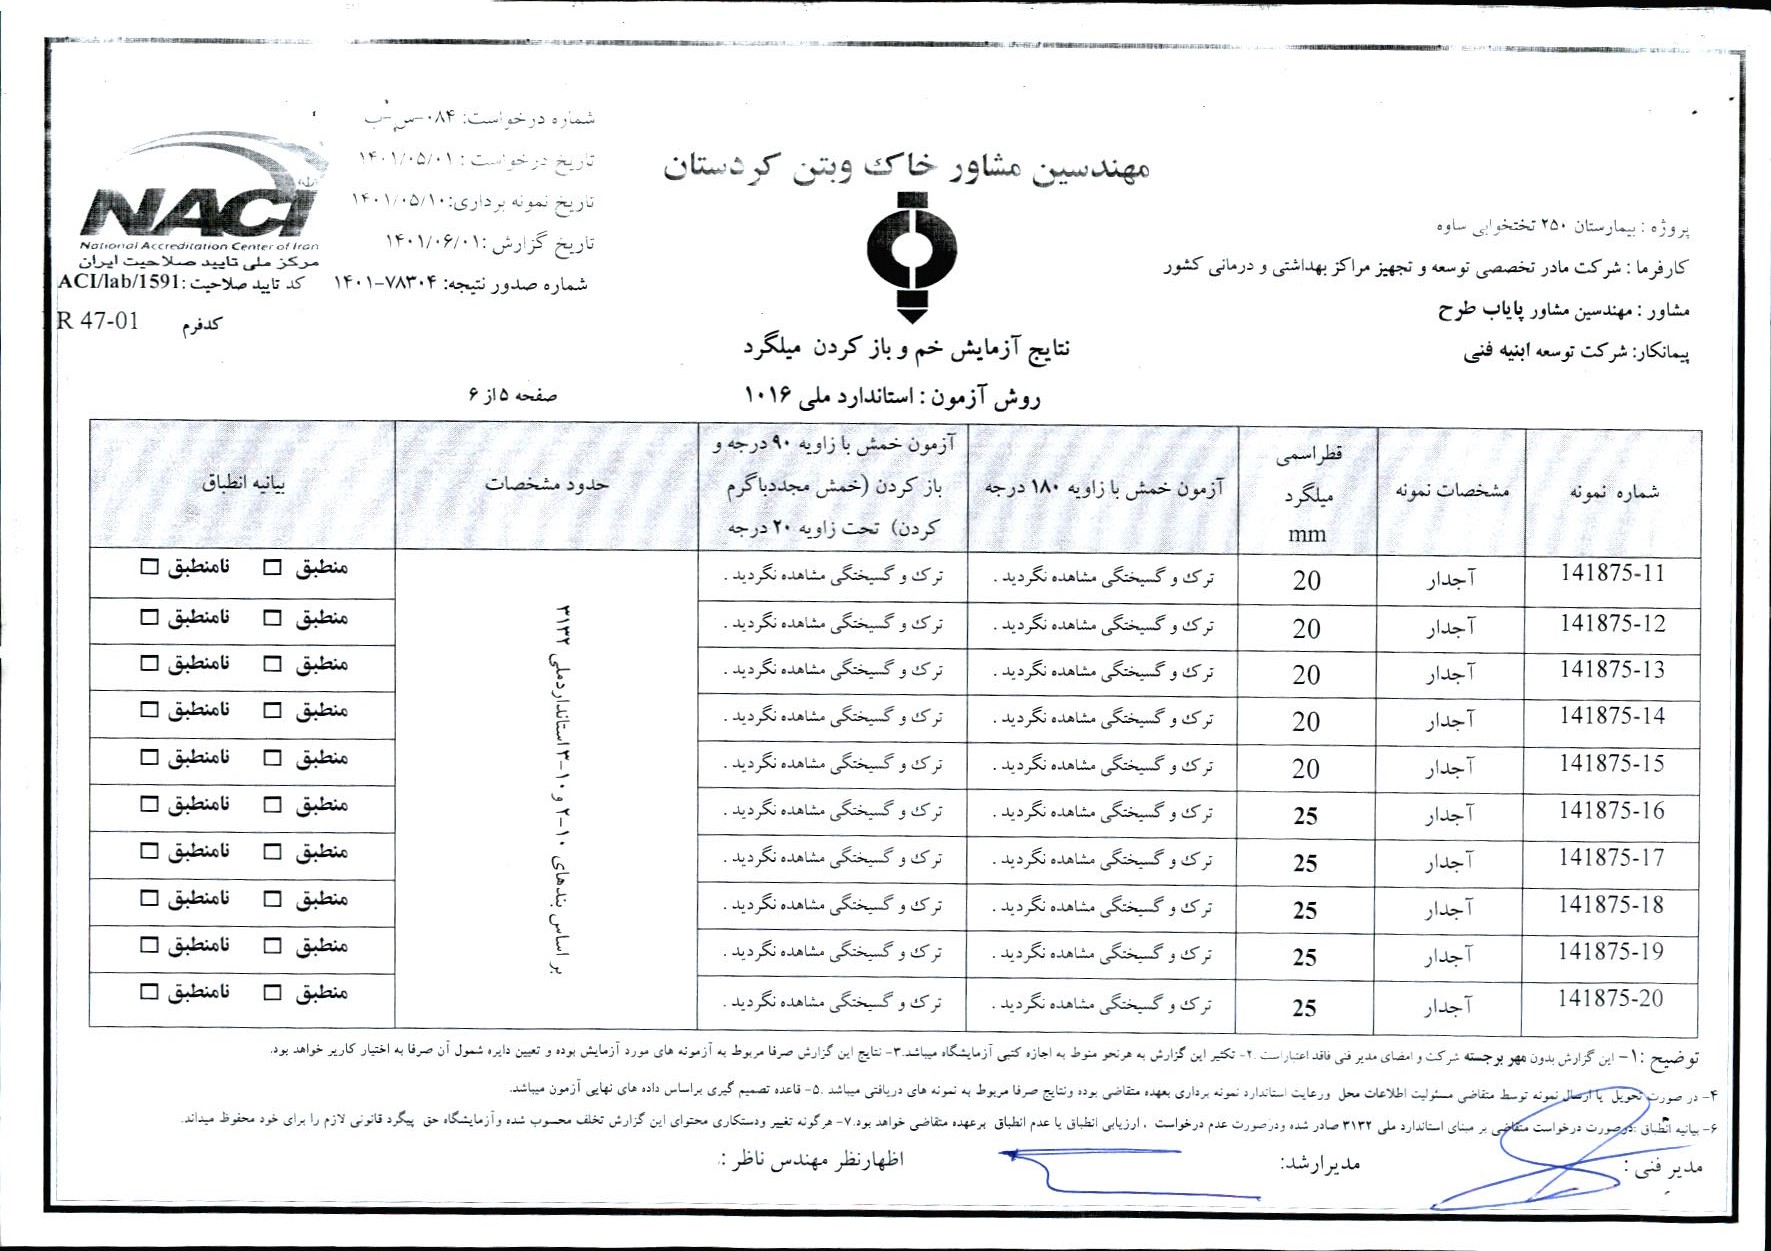 مهندسین مشاور خاک وبتن کردستان
پروژه : بیمارستان ۲۵۰ تختخوابی ساوه
کارفرما : شرکت مادر تخصصی توسعه و تجهیز مراکز بهداشتی و درمانی کشور
مشاور : مهندسین مشاور پایاب طرح
پیمانکار: شرکت توسعه ابنیه فنی
شماره درخواست: ۰۸۴-س-ب
تاریخ درخواست : ۱۴۰۱/۰۵/۰۱
تاریخ نمونه برداری:۱۴۰۱/۰۵/۱۰
تاریخ گزارش :۱۴۰۱/۰۶/۰۱
شماره صدور نتیجه: ۷۸۳۰۴-۱۴۰۱
NACI
National Accreditation Center of Iran
مرکز ملی تایید صلاحیت ایران
کد تایید صلاحیت :ACI/lab/1591
کدفرم R 47-01
نتایج آزمایش خم و باز کردن میلگرد
روش آزمون : استاندارد ملی ۱۰۱۶
صفحه ۵ از ۶
شماره نمونه
مشخصات نمونه
قطراسمی
میلگرد
mm
آزمون خمش با زاویه ۱۸۰ درجه
آزمون خمش با زاویه ۹۰ درجه و
باز کردن (خمش مجددباگرم
کردن) تحت زاویه ۲۰ درجه
حدود مشخصات
بیانیه انطباق
بر اساس بندهای ۱۰-۲ و ۱۰-۳استانداردملی ۳۱۳۲
141875-11 آجدار 20 ترک و گسیختگی مشاهده نگردید . ترک و گسیختگی مشاهده نگردید . منطبق □ نامنطبق □
141875-12 آجدار 20 ترک و گسیختگی مشاهده نگردید . ترک و گسیختگی مشاهده نگردید . منطبق □ نامنطبق □
141875-13 آجدار 20 ترک و گسیختگی مشاهده نگردید . ترک و گسیختگی مشاهده نگردید . منطبق □ نامنطبق □
141875-14 آجدار 20 ترک و گسیختگی مشاهده نگردید . ترک و گسیختگی مشاهده نگردید . منطبق □ نامنطبق □
141875-15 آجدار 20 ترک و گسیختگی مشاهده نگردید . ترک و گسیختگی مشاهده نگردید . منطبق □ نامنطبق □
141875-16 آجدار 25 ترک و گسیختگی مشاهده نگردید . ترک و گسیختگی مشاهده نگردید . منطبق □ نامنطبق □
141875-17 آجدار 25 ترک و گسیختگی مشاهده نگردید . ترک و گسیختگی مشاهده نگردید . منطبق □ نامنطبق □
141875-18 آجدار 25 ترک و گسیختگی مشاهده نگردید . ترک و گسیختگی مشاهده نگردید . منطبق □ نامنطبق □
141875-19 آجدار 25 ترک و گسیختگی مشاهده نگردید . ترک و گسیختگی مشاهده نگردید . منطبق □ نامنطبق □
141875-20 آجدار 25 ترک و گسیختگی مشاهده نگردید . ترک و گسیختگی مشاهده نگردید . منطبق □ نامنطبق □
توضیح :۱- این گزارش بدون مهر برجسته شرکت و امضای مدیر فنی فاقد اعتباراست .۲- تکثیر این گزارش به هرنحو منوط به اجازه کتبی آزمایشگاه میباشد.۳- نتایج این گزارش صرفا مربوط به آزمونه های مورد آزمایش بوده و تعیین دایره شمول آن صرفا به اختیار کاربر خواهد بود.
۴- در صورت تحویل یا ارسال نمونه توسط متقاضی مسئولیت اطلاعات محل ورعایت استاندارد نمونه برداری بعهده متقاضی بوده ونتایج صرفا مربوط به نمونه های دریافتی میباشد .۵- قاعده تصمیم گیری براساس داده های نهایی آزمون میباشد.
۶- بیانیه انطباق :درصورت درخواست متقاضی بر مبنای استاندارد ملی ۳۱۳۲ صادر شده ودرصورت عدم درخواست ، ارزیابی انطباق یا عدم انطباق برعهده متقاضی خواهد بود.۷- هرگونه تغییر ودستکاری محتوای این گزارش تخلف محسوب شده وآزمایشگاه حق پیگرد قانونی لازم را برای خود محفوظ میداند.
مدیر فنی :
مدیرارشد:
اظهارنظر مهندس ناظر :